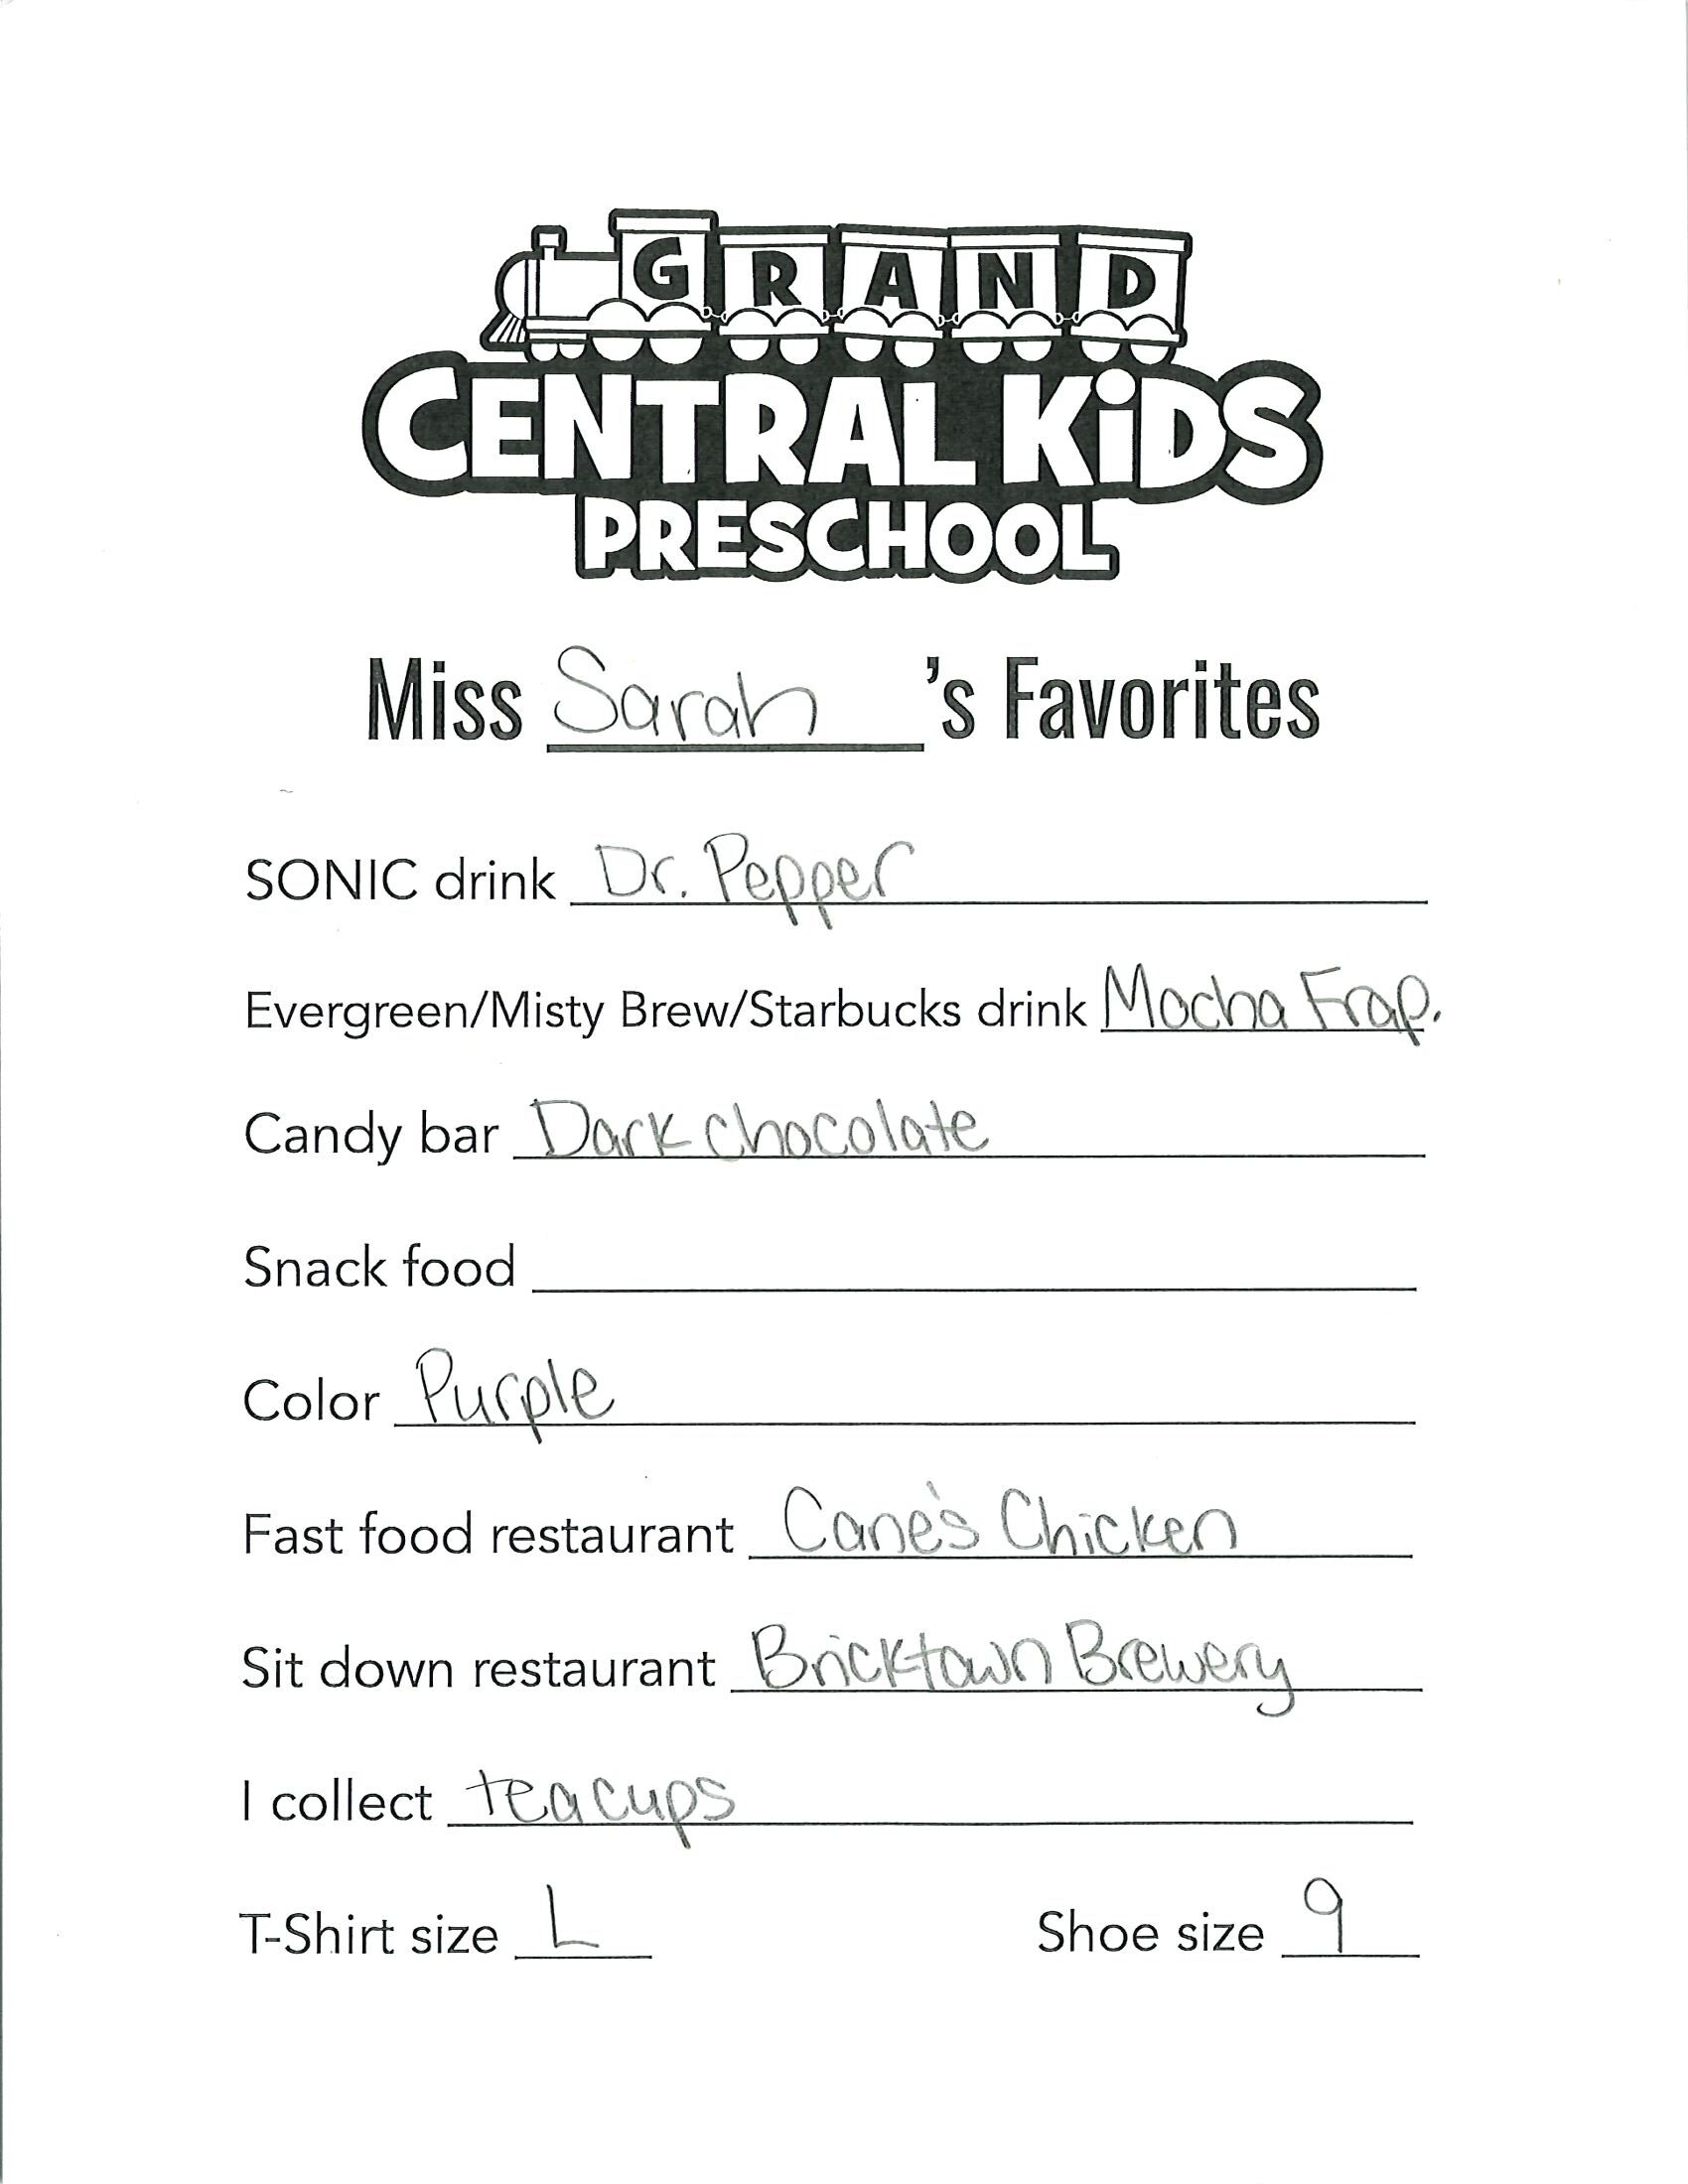 GRAND
CENTRAL KiDS
PRESCHOOL
Miss Sarah 's Favorites
SONIC drink Dr. Pepper
Evergreen/Misty Brew/Starbucks drink Mocha Frap.
Candy bar Dark chocolate
Snack food
Color Purple
Fast food restaurant Cane's Chicken
Sit down restaurant Bricktown Brewery
I collect teacups
T-Shirt size L Shoe size 9